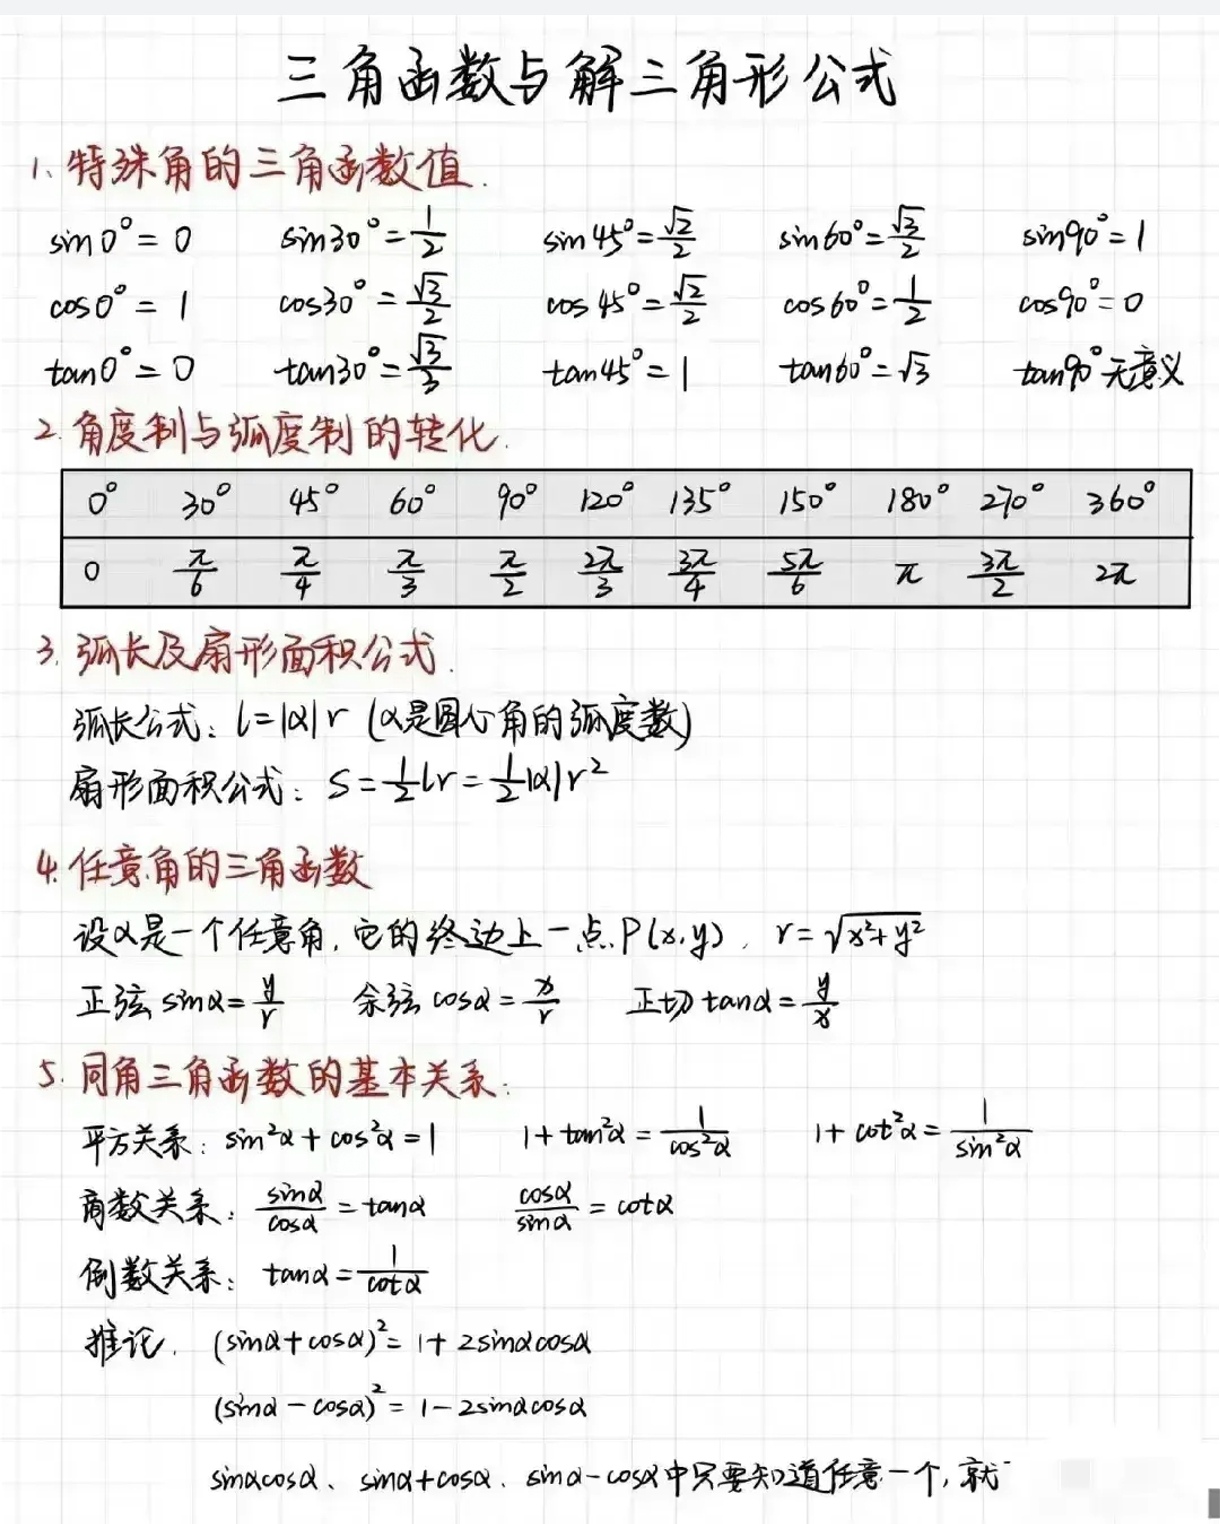 三角函数与解三角形公式
1、特殊角的三角函数值.
sin0°=0 sin30°=1/2 sin45°=√2/2 sin60°=√3/2 sin90°=1
cos0°=1 cos30°=√3/2 cos45°=√2/2 cos60°=1/2 cos90°=0
tan0°=0 tan30°=√3/3 tan45°=1 tan60°=√3 tan90°无意义
2.角度制与弧度制的转化.
0° 30° 45° 60° 90° 120° 135° 150° 180° 270° 360°
0 π/6 π/4 π/3 π/2 2π/3 3π/4 5π/6 π 3π/2 2π
3.弧长及扇形面积公式.
弧长公式: l=|α|r (α是圆心角的弧度数)
扇形面积公式: S=1/2lr=1/2|α|r²
4.任意角的三角函数
设α是一个任意角,它的终边上一点P(x,y), r=√(x²+y²)
正弦 sinα=y/r 余弦 cosα=x/r 正切 tanα=y/x
5.同角三角函数的基本关系:
平方关系: sin²α+cos²α=1 1+tan²α=1/cos²α 1+cot²α=1/sin²α
商数关系: sinα/cosα=tanα cosα/sinα=cotα
倒数关系: tanα=1/cotα
推论. (sinα+cosα)²=1+2sinαcosα
(sinα-cosα)²=1-2sinαcosα
sinαcosα、sinα+cosα、sinα-cosα中只要知道任意一个,就